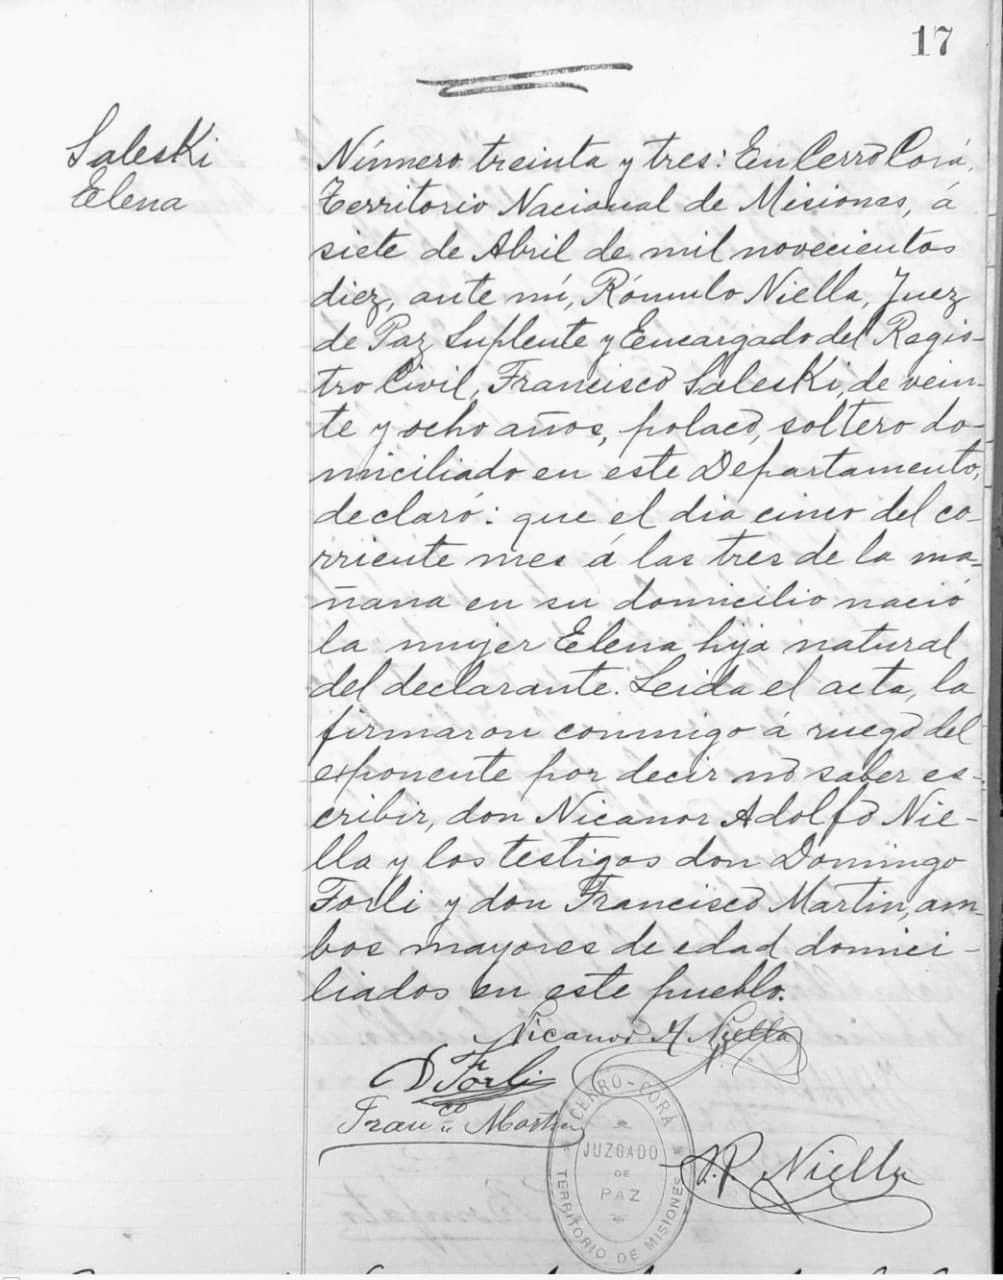 17
Saleski
Elena
Número treinta y tres: En Cerro Corá,
Territorio Nacional de Misiones, á
siete de Abril de mil novecientos
diez, ante mí, Rómulo Niella, Juez
de Paz Suplente y Encargado del Regis-
tro Civil, Francisco Saleski, de vein-
te y ocho años, polaco, soltero do-
miciliado en este Departamento,
declaró: que el dia cinco del co-
rriente mes á las tres de la ma-
ñana en su domicilio nació
la mujer Elena hija natural
del declarante. Leida el acta, la
firmaron conmigo á ruego del
exponente por decir no saber es-
cribir, don Nicanor Adolfo Nie-
lla y los testigos don Domingo
Forli y don Francisco Martin, am-
bos mayores de edad domici-
liados en este pueblo.
Nicanor A Niella
D Forli
Franco Martin
CERRO-CORA
JUZGADO
DE
PAZ
TERRITORIO DE MISIONES
Niella